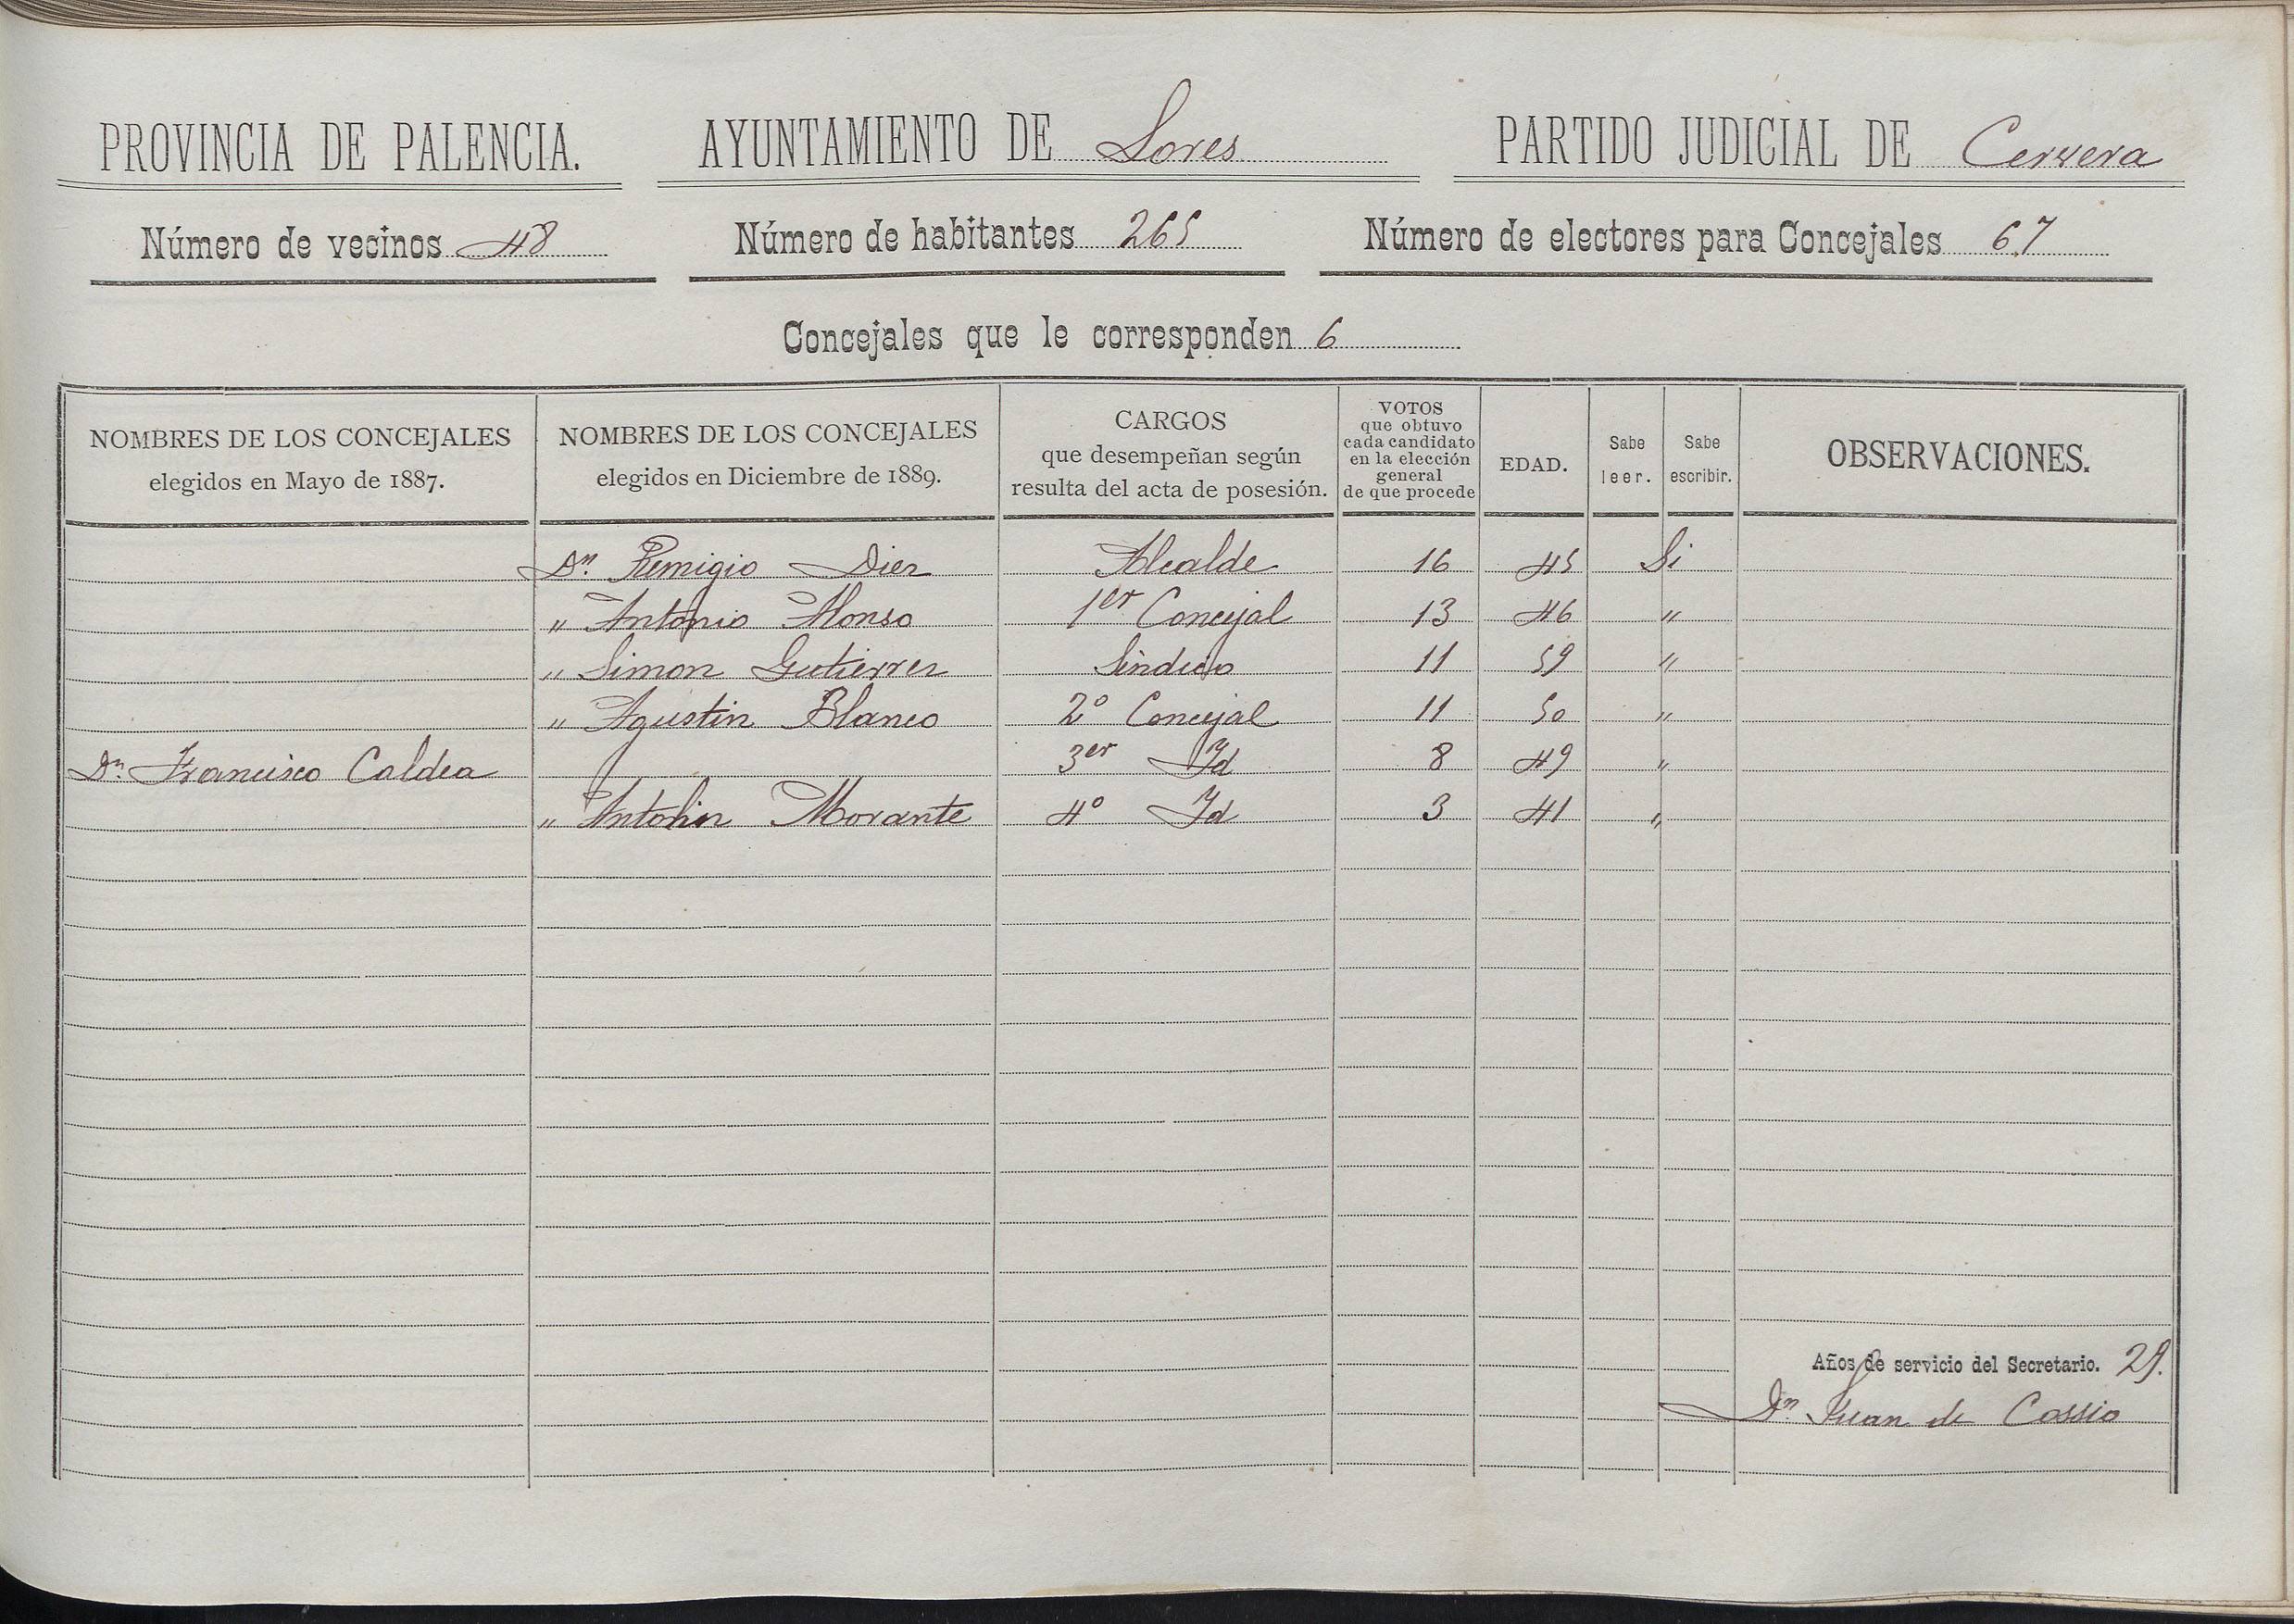 PROVINCIA DE PALENCIA. AYUNTAMIENTO DE Lores PARTIDO JUDICIAL DE Cervera
Número de vecinos 48 Número de habitantes 265 Número de electores para Concejales 67
Concejales que le corresponden 6
NOMBRES DE LOS CONCEJALES
elegidos en Mayo de 1887.
NOMBRES DE LOS CONCEJALES
elegidos en Diciembre de 1889.
CARGOS
que desempeñan según
resulta del acta de posesión.
VOTOS
que obtuvo
cada candidato
en la elección
general
de que procede
EDAD.
Sabe
leer.
Sabe
escribir.
OBSERVACIONES.
Dn. Remigio Diez Alcalde 16 45 Si
" Antonio Alonso 1er Concejal 13 46 "
" Simon Gutierrez Sindico 11 59 "
" Agustin Blanco 2º Concejal 11 50 "
Dn. Francisco Caldea 3er Id 8 49 "
" Antolin Morante 4º Id 3 41 "
Años de servicio del Secretario. 29.
Dn Juan de Cossio